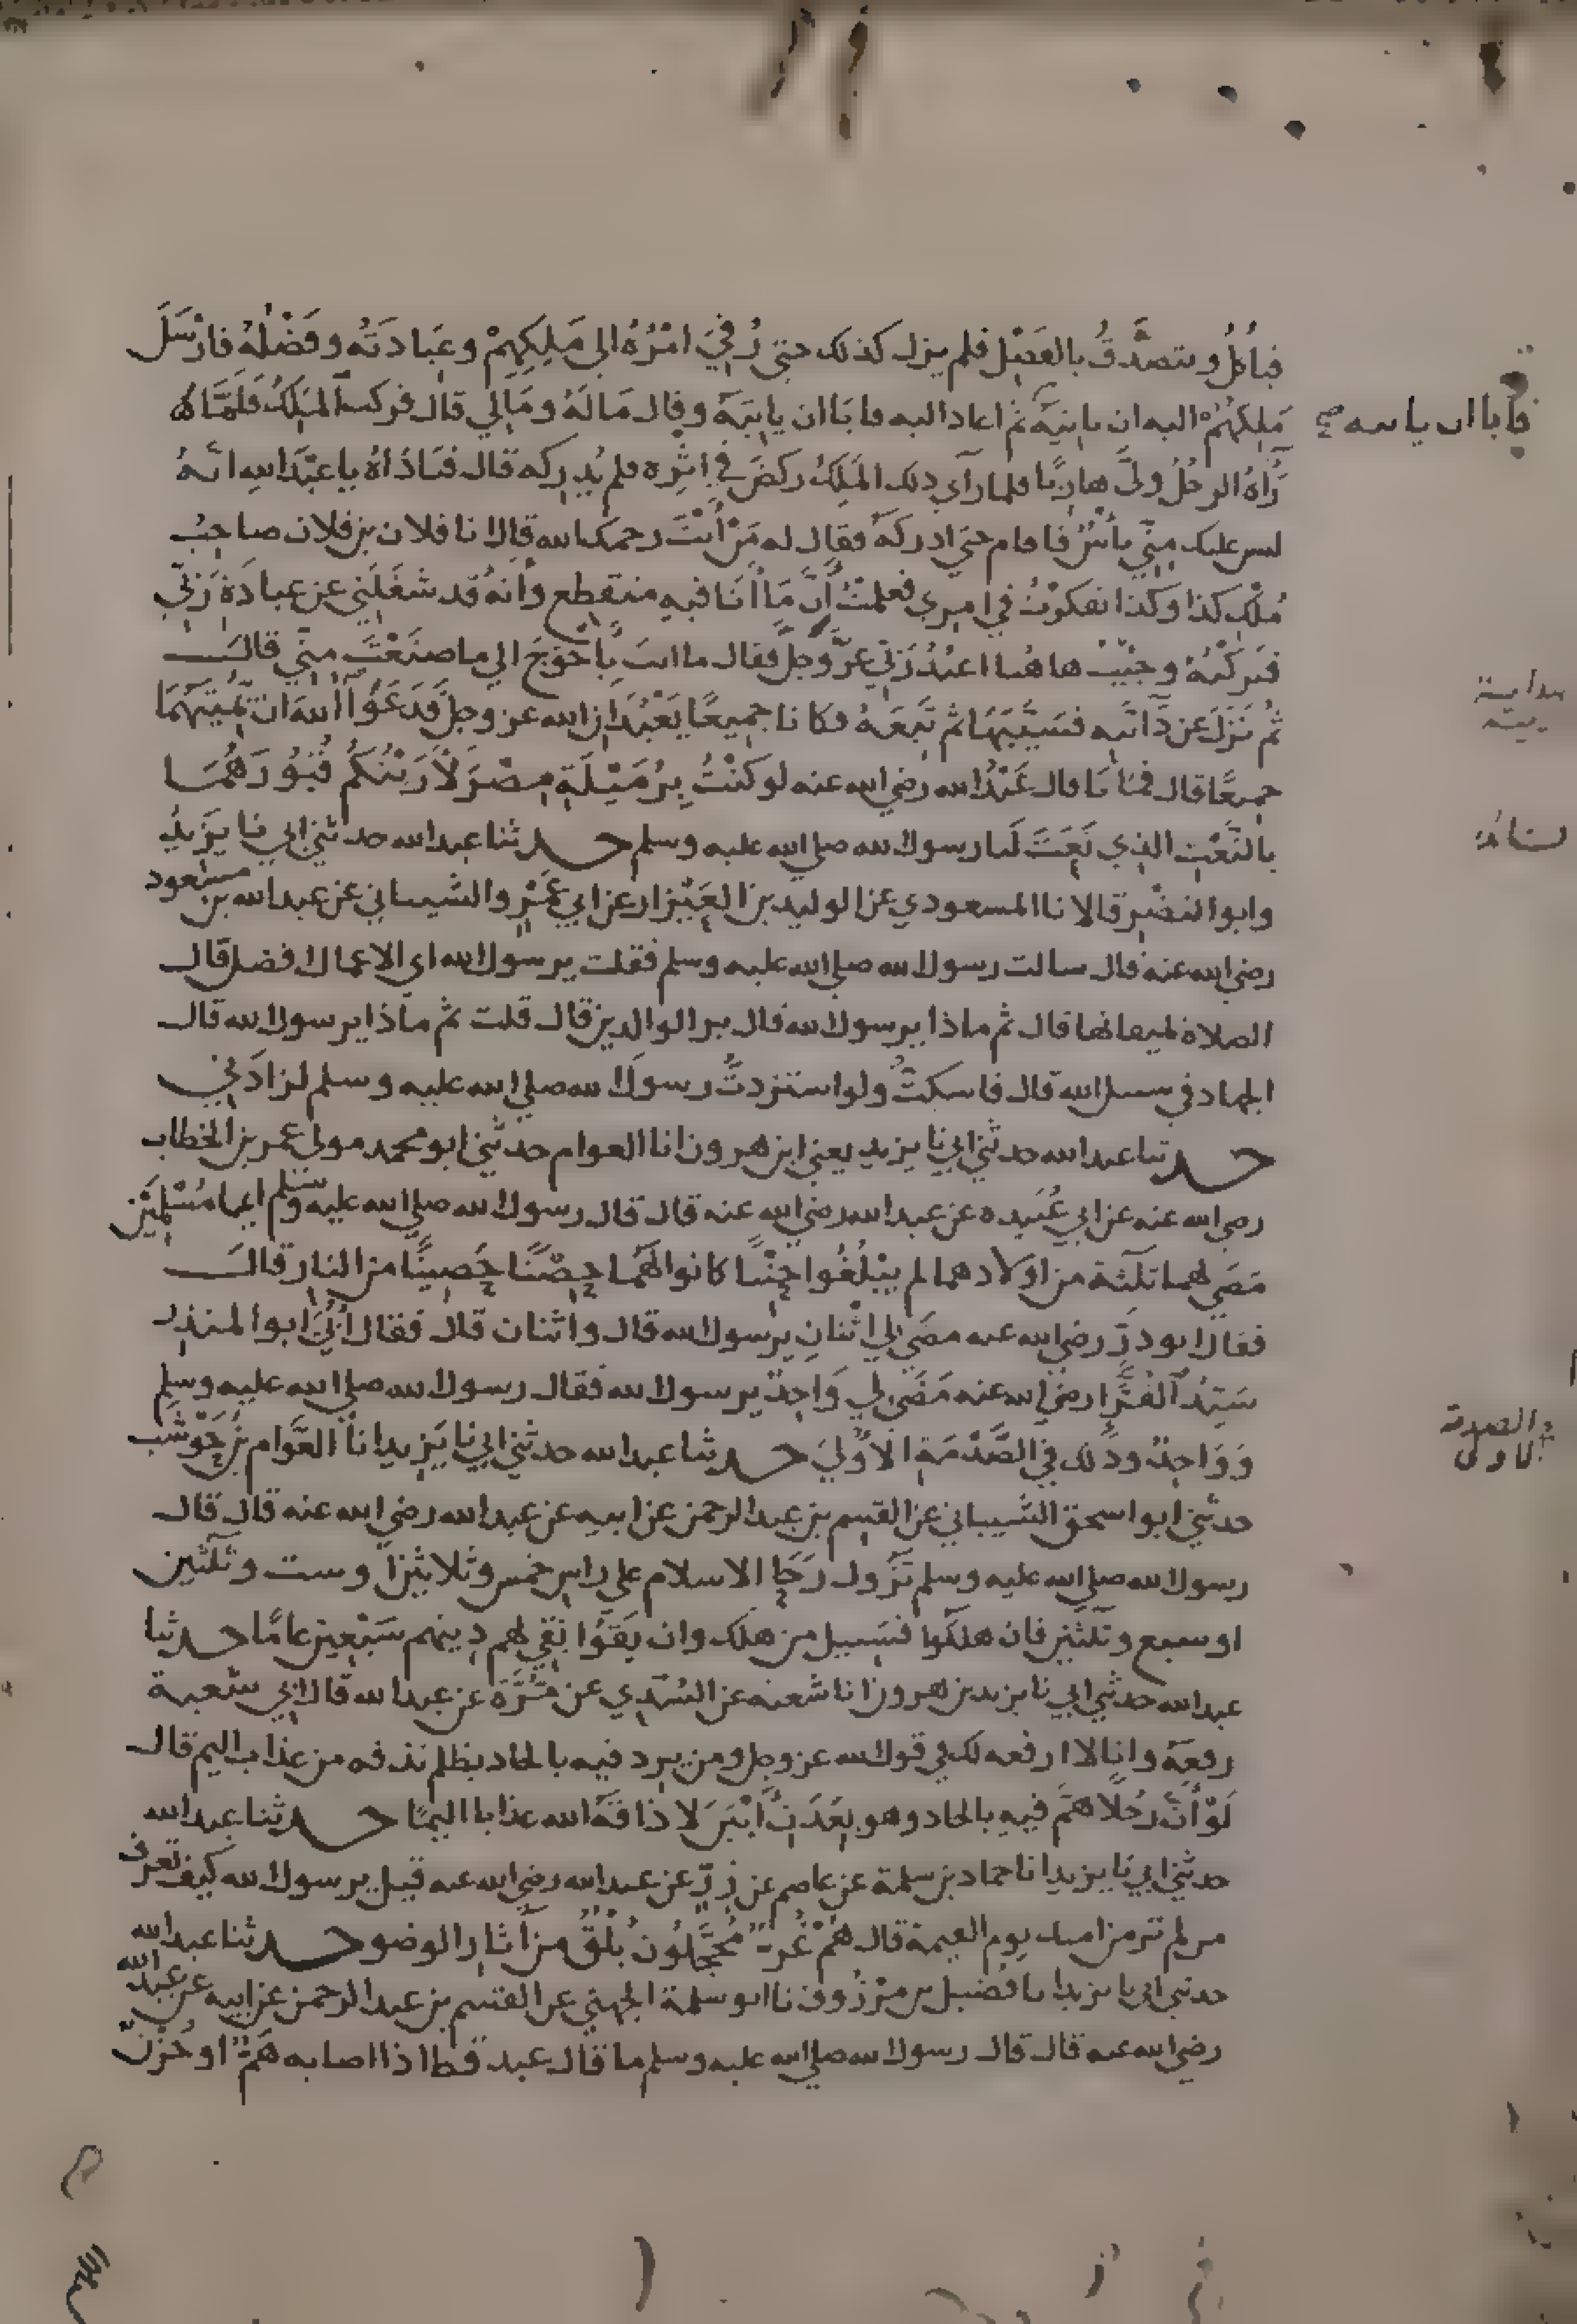 فيأكل ويتصدق بالفضل فلم يزل كذلك حتى رُقِيَ امْرُهُ الى مَلِكِهِمْ وعِبَادَتُه وفَضْلُهُ فارْسَلَ
مَلِكهُمْ اليه ان ياتيَهُ ثم اعاد اليه فابَا ان ياتيَهُ وقال مَا لَهُ ومَالِي قال فركب المَلِكُ فَلَمَّا
رَاهُ الرجُلُ ولَّى هاربًا فلما رآى ذلك المَلِكُ ركضَ في اثْرِه فلم يُدركه قال فنَادَاهُ يا عبْدَ الله انهُ
ليس عليك مِنّي بأسٌ فاقام حتى ادركَهُ فقال له مَنْ أنْتَ رحمك الله قال انا فلان بن فلان صاحِبُ
مُلْكِ كذا وكذا تفكرْتُ في امري فعلمْتُ أنَّ مَا أنَا فيه منقطِع وأنهُ قد شغَلَني عن عبادَةِ رَبّي
فتركْتُهُ وجِئتُ هاهُنا اعبُدُ رَبّي عزّ وجلّ فقال ما انت بأحْوَج الى ما صنَعْتَ مِنّي قالَ
ثُمّ نَزَلَ عن دَآبّتِه فسَيَّبَهَا ثم تَبِعَهُ فكانا جميعًا يَعْبُدَانِ الله عز وجل فَدَعَوَا الله ان يُمِيتَهُمَا
جميعًا قال فماتا قال عَبْدُ الله رضي الله عنه لو كنْتُ بِرُمَيْلَةِ مِصْرَ لأرَيْتُكُم قُبُورَهُمَا
بالنَّعْتِ الذي نَعَتَ لنا رسول الله صلى الله عليه وسلم حدثنا عبد الله حدثني ابي نا يزيدُ
وابو النضْرِ قالا نا المسعودي عن الوليد بن العَيْزار عن ابي عَمْرٍو الشيباني عن عبد الله بن مسعود
رضي الله عنه قال سالت رسول الله صلى الله عليه وسلم فقلت يرسول الله اي الاعمال افضل قال
الصلاة لميقاتها قال ثم ماذا يرسول الله قال بر الوالدين قال قلت ثم ماذا يرسول الله قال
الجهاد في سبيل الله قال فاسكتُّ ولو استزدتُّ رسولَ الله صلى الله عليه وسلم لزادَني
حدثنا عبد الله حدثني ابي نا يزيد يعني ابن هرون انا العوام حدثني ابو محمد مولى عمر بن الخطاب
رضي الله عنه عن ابي عُبَيدة عن عبد الله رضي الله عنه قال قال رسول الله صلى الله عليه وسلم ايما مُسْلِمَيْن
مَضَى لهما ثلثة من اوْلادهما لم يبْلُغُوا حِنْثًا كانوا لهُمَا حِصْنًا حَصِينًا من النار قالَ
فقال ابو ذرّ رضي الله عنه مضَى لي اثْنانِ يرسول الله قال واثنان قال فقال أُبَيّ ابو المنذر
سَيّدُ القُرّاءِ رضي الله عنه مَضَى لي وَاحِدٌ يرسول الله فقال رسول الله صلى الله عليه وسلم
وَوَاحِدٌ وذلك في الصَّدْمَةِ الأولَى حدثنا عبد الله حدثني ابي نا يَزيد انا العَوّام بنُ حَوْشَب
حدثني ابو اسحق الشيباني عن القسم بن عبد الرحمن عن ابيه عن عبد الله رضي الله عنه قال قال
رسول الله صلى الله عليه وسلم تَزُولُ رَحَا الاسلام على راسِ خمس وثلاثينَ او ست وثلثين
او سبع وثلثين فان هلَكُوا فسَبيل من هلك وان بَقَوْا بَقِيَ لهم دينهم سَبْعِين عامًا حدثنا
عبد الله حدثني ابي نا يزيد بن هرون انا شعبة عن السُّدّي عن مُرَّةَ عن عبد الله قال ابي شعبة
رفعَهُ وانا لا ارفعه لك في قول الله عز وجل ومن يرد فيه بالحاد بظلم نذقه من عذاب اليم قال
لَوْ أنّ رَجُلًا هَمّ فيه بالحاد وهو بِعَدَنِ أبْيَنَ لاذاقَهُ الله عذابا اليمًا حدثنا عبد الله
حدثني ابي نا يزيد انا حماد بن سلمة عن عاصم عن زِرّ عن عبد الله رضي الله عنه قيل يرسول الله كيف تعرف
من لم تر من امتك يوم القيمة قال هُمْ غُرٌّ مُحَجَّلُونَ بُلْقٌ من آثار الوضو حدثنا عبد الله
حدثني ابي نا يزيد انا فُضَيل بن مَرْزُوق نا ابو سلمة الجهني عن القسم بن عبد الرحمن عن ابيه عن عبد الله
رضي الله عنه قال قال رسول الله صلى الله عليه وسلم ما قال عبد قط اذا اصابه هَمٌّ او حُزْنٌ
فابا ان ياتيه صح
والصدمة
الاولى